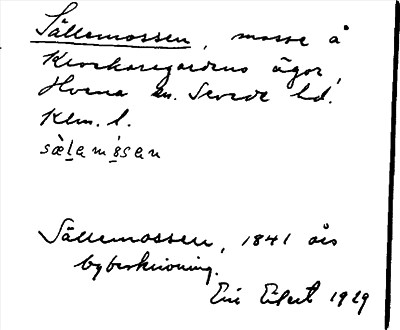 Sällemossen, mosse å
Klockaregårdens ägor,
Hvena sn. Sevede hd.
Klm. l.
sæ̀l̲a m ó̤san
Sällemossen, 1841 års
bybeskrivning.
Eric Eilert 1929